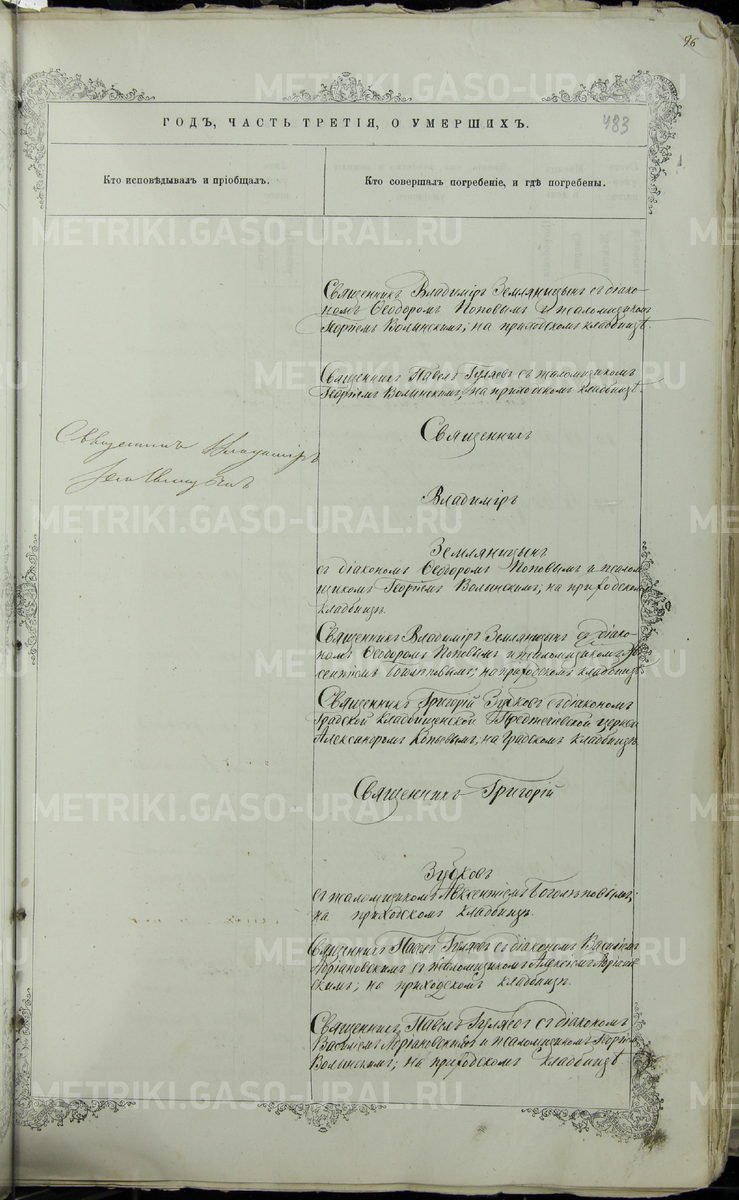 96
ГОДЪ, ЧАСТЬ ТРЕТІЯ, О УМЕРШИХЪ.
483
Кто исповѣдывалъ и пріобщалъ.
Кто совершалъ погребеніе, и гдѣ погребены.
Священникъ Владиміръ Земляницынъ съ діако-
номъ Ѳеодоромъ Поповымъ и псаломщикомъ
Георгіемъ Волынскимъ; на приходскомъ кладбищѣ.
Священникъ Павелъ Гуляевъ съ псаломщикомъ
Георгіемъ Волынскимъ; на приходскомъ кладбищѣ.
Священникъ Владиміръ
Земляницынъ
Священникъ
Владиміръ
Земляницынъ
съ діакономъ Ѳеодоромъ Поповымъ и псалом
щикомъ Георгіемъ Волынскимъ; на приходскомъ
кладбищѣ.
Священникъ Владиміръ Земляницынъ съ діако-
номъ Ѳеодоромъ Поповымъ и псаломщикомъ Ав
ксентіемъ Боголѣповымъ; на приходскомъ кладбищѣ.
Священникъ Григорій Зубковъ съ діакономъ
Градской кладбищенской Предтечевской церкви
Александромъ на Градскомъ кладбищѣ.
Священникъ Григорій
Зубковъ
съ псаломщикомъ Авксентіемъ Боголѣповымъ;
на приходскомъ кладбищѣ.
Священникъ Павелъ Гуляевъ съ діакономъ Василіемъ
Адріановскимъ съ псаломщикомъ Алексіемъ Адріанов
скимъ; на приходскомъ кладбищѣ.
Священникъ Павелъ Гуляевъ съ діакономъ
Василіемъ Адріановскимъ и псаломщикомъ Георгіемъ
Волынскимъ; на приходскомъ кладбищѣ
METRIKI.GASO-URAL.RU